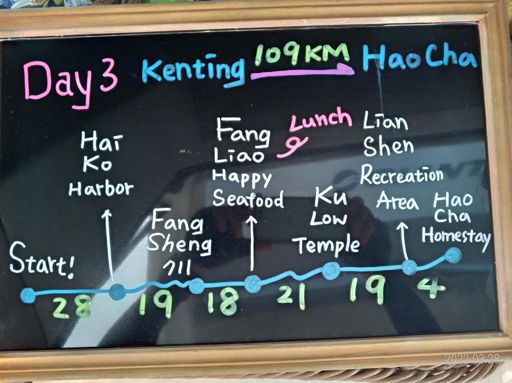 Day 3 Kenting 109KM HaoCha
Hai
Ko
Harbor
Fang
Sheng
711
Fang
Liao
Happy
Seafood
Lunch
Ku
Low
Temple
Lian
Shen
Recreation
Area
Hao
Cha
Homestay
Start!
28 19 18 21 19 4